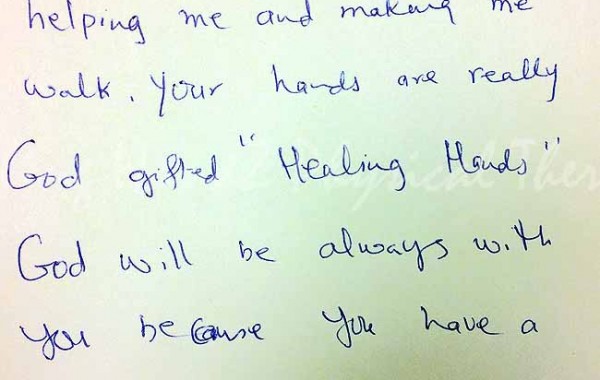 helping me and making me
walk. Your hands are really
God gifted "Healing Hands"
God will be always with
you because you have a